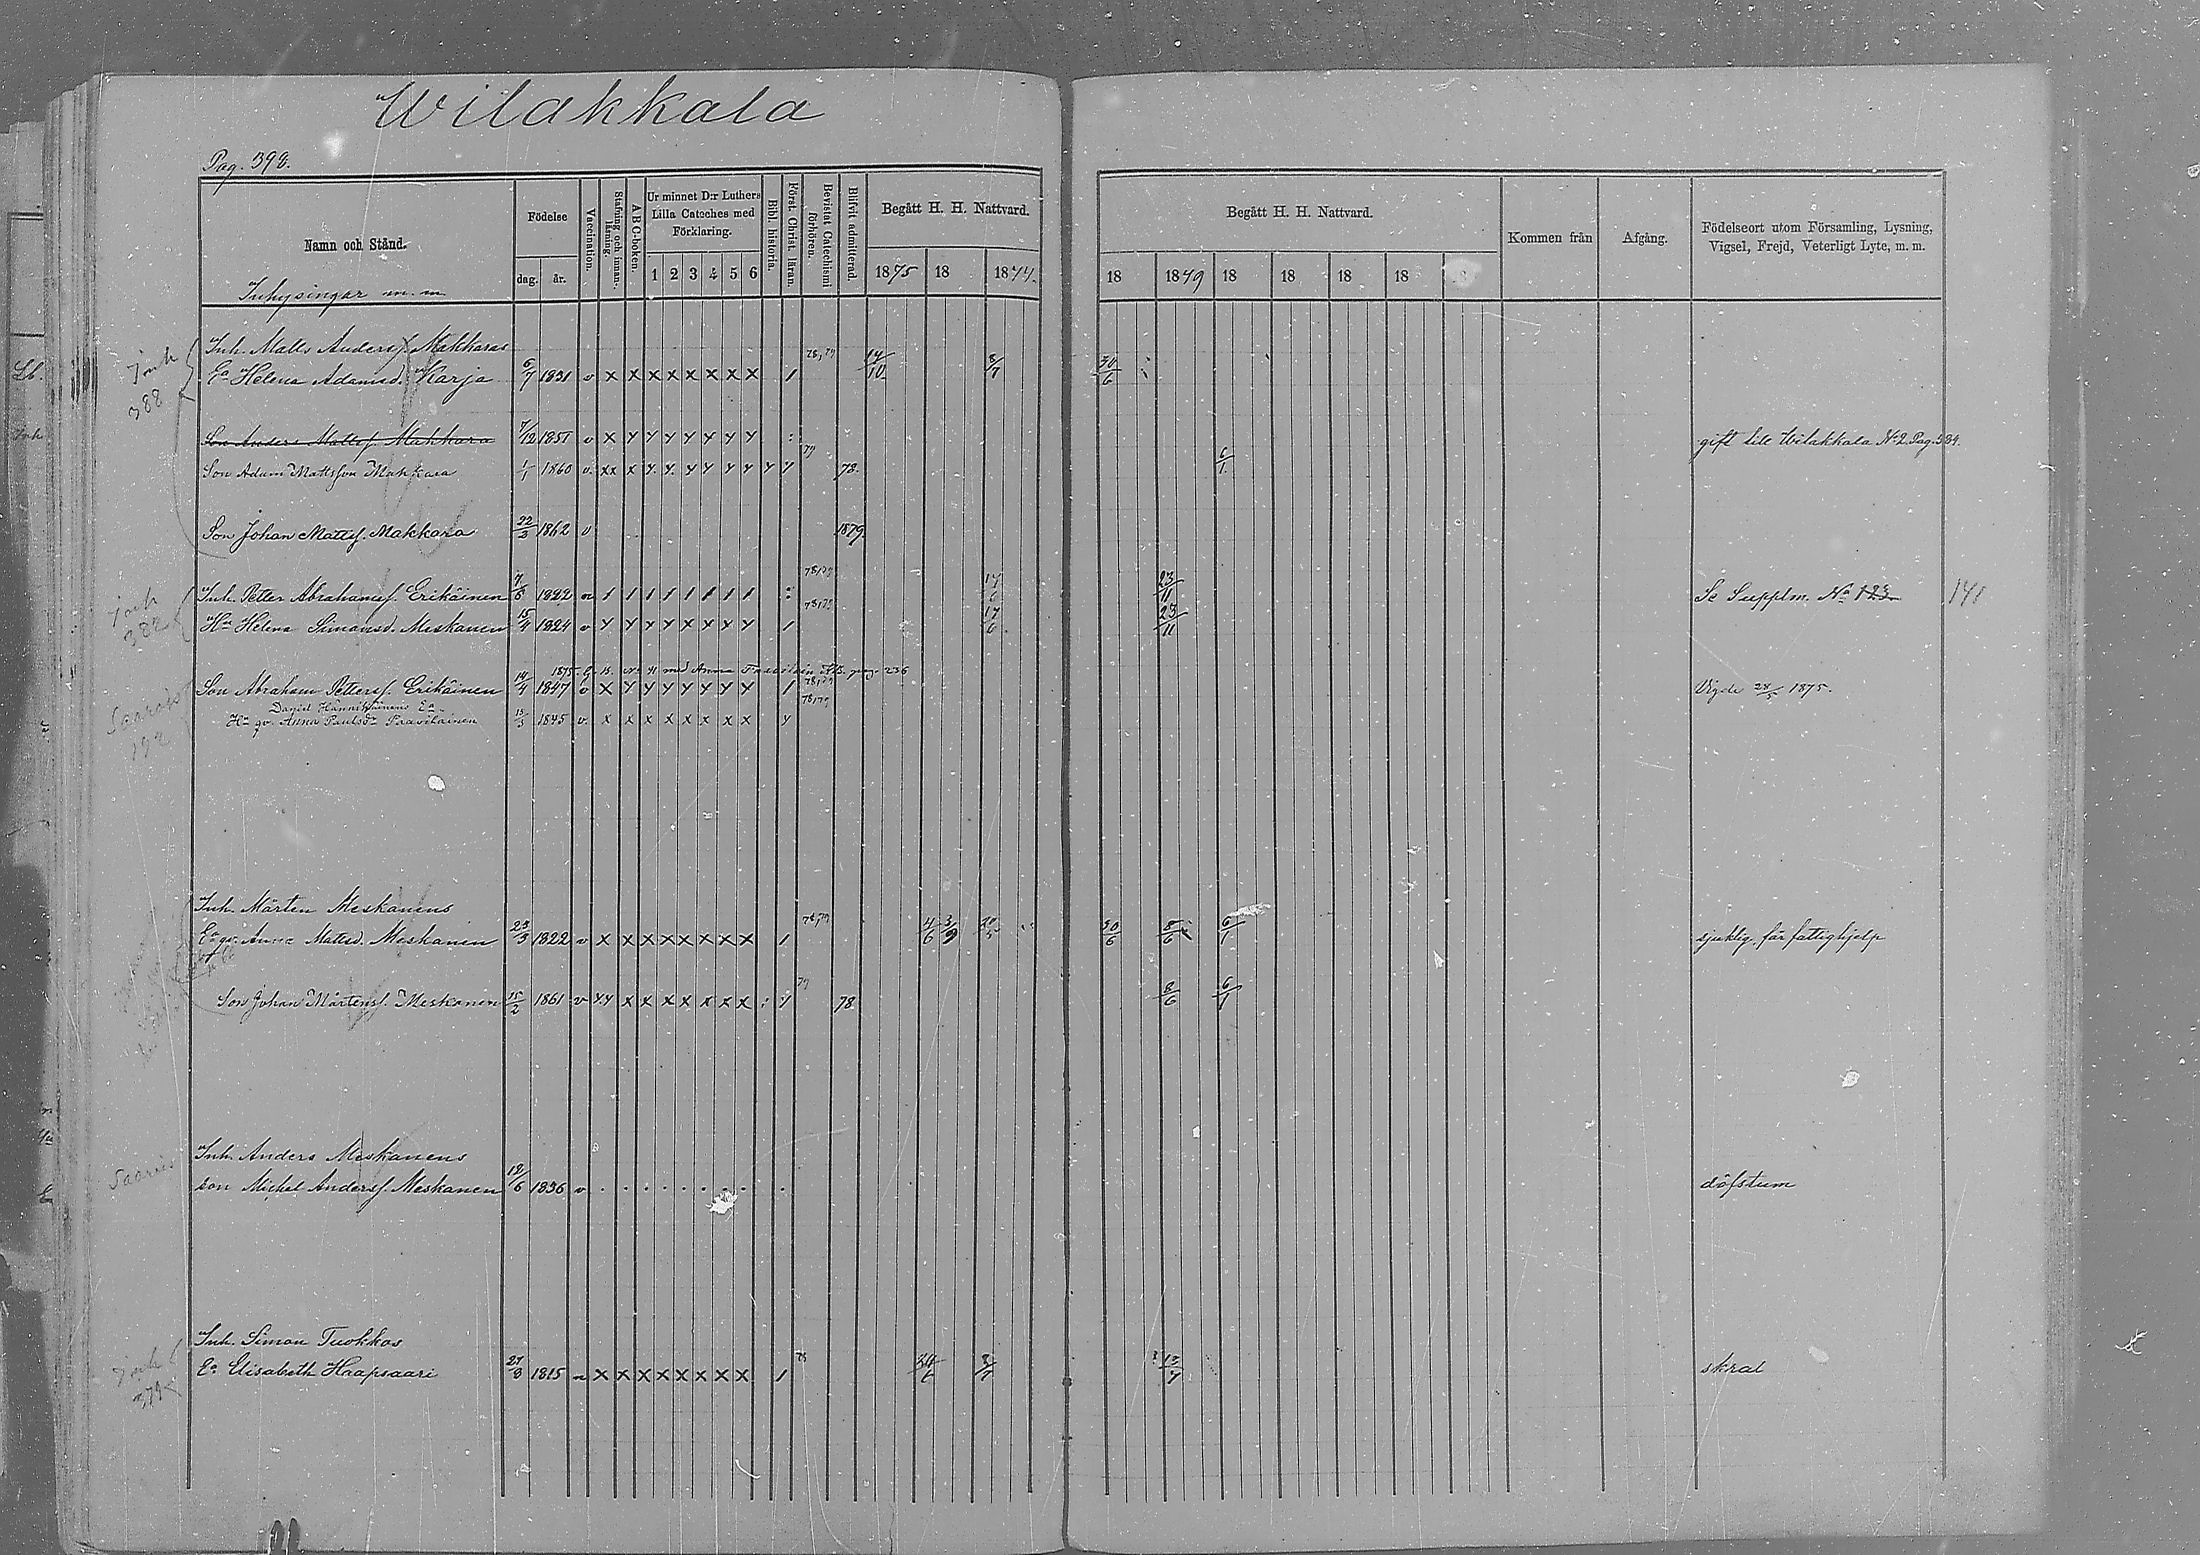 Wilakkala
Pag. 398.
Namn och Stånd.
Födelse
dag. år.
Vaccination.
Stafning och innan-läsning.
A B C-boken.
Ur minnet D:r Luthers
Lilla Cateches med
Förklaring.
1 2 3 4 5 6
Bibl. historia.
Först. Christ. läran.
Bevistat Catechismi förhören.
Blifvit admitterad.
Begått H. H. Nattvard.
1875 18 1877.
Begått H. H. Nattvard.
18 1879 18 18 18 18
Kommen från
Afgång.
Födelseort utom Församling, Lysning,
Vigsel, Frejd, Veterligt Lyte, m. m.
Inhysingar m. m.
Inh. Matts Andersf. Makkaras
Ea Helena Adamsd. Karja 6/7 1831 v x x x x x x x x 1 78,79 14/10 8/7 30/6
Inh 388
Son Anders Mattsf. Makkara 7/12 1851 v x y y y y y y y gift till Wilakkala No 2 Pag. 384.
Son Adam Mattsson Makkara 1/1 1860 v. xx x y. y. y y y y y y 79 78. 6/1.
Son Johan Mattsf. Makkara 22/3 1862 v 1879.
Inh. Petter Abrahamsf Erikäinen 7/8 1822 n 1 1 1 1 1 1 1 1 : 78,79 17/6 23/11 Se Supplm. No 123 141
Hu Helena Simonsd. Meskanen 15/4 1824 v y y x x x x y y 1 78,79 17/6 23/11
Inh 382
1875 med Anna pag. 236
Son Abraham Pettersf. Erikäinen 14/4 1847 v x y y y y y y x 1 78,79 Vigde 28/5 1875.
Daniel Hännikäinens Ea
Hu gv. Anna Paulsdr Paavilainen 13/3 1845 v. x x x x x x x x y 78,79
192
Inh. Mårten Meskanens
Ea gv. Anna Mattsd. Meskanen 23/3 1822 v x x x x x x x x 1 78,79 4/6 3/9 30/6 8/6 6/1 sjuklig, får fattighjelp
Son Johan Mårtensf. Meskanen 15/2 1861 v y.y x x x x x x x : 79 78 8/6 6/1
Inh. Anders Meskanens
son Michel Andersf. Meskanen 18/6 1836 v döfstum
Inh. Simon Tuokkos
Ea Elisabeth Haapsaari 27/8 1815 n x x x x x x x x 1 24/6 8/7 13/7 skral
Inh 379